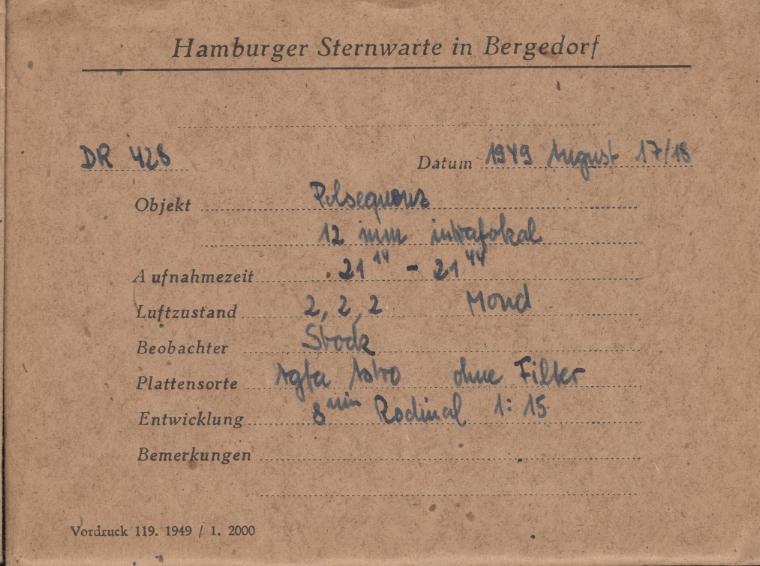 Hamburger Sternwarte in Bergedorf
DR 428 Datum 1949 August 17/18
Objekt Polsequenz
12 mm intrafokal
Aufnahmezeit 21¹⁴ - 21⁴⁴
Luftzustand 2, 2, 2 Mond
Beobachter Stock
Plattensorte Agfa Astro ohne Filter
Entwicklung 8 min Rodinal 1:15
Bemerkungen
Vordruck 119. 1949 / 1. 2000